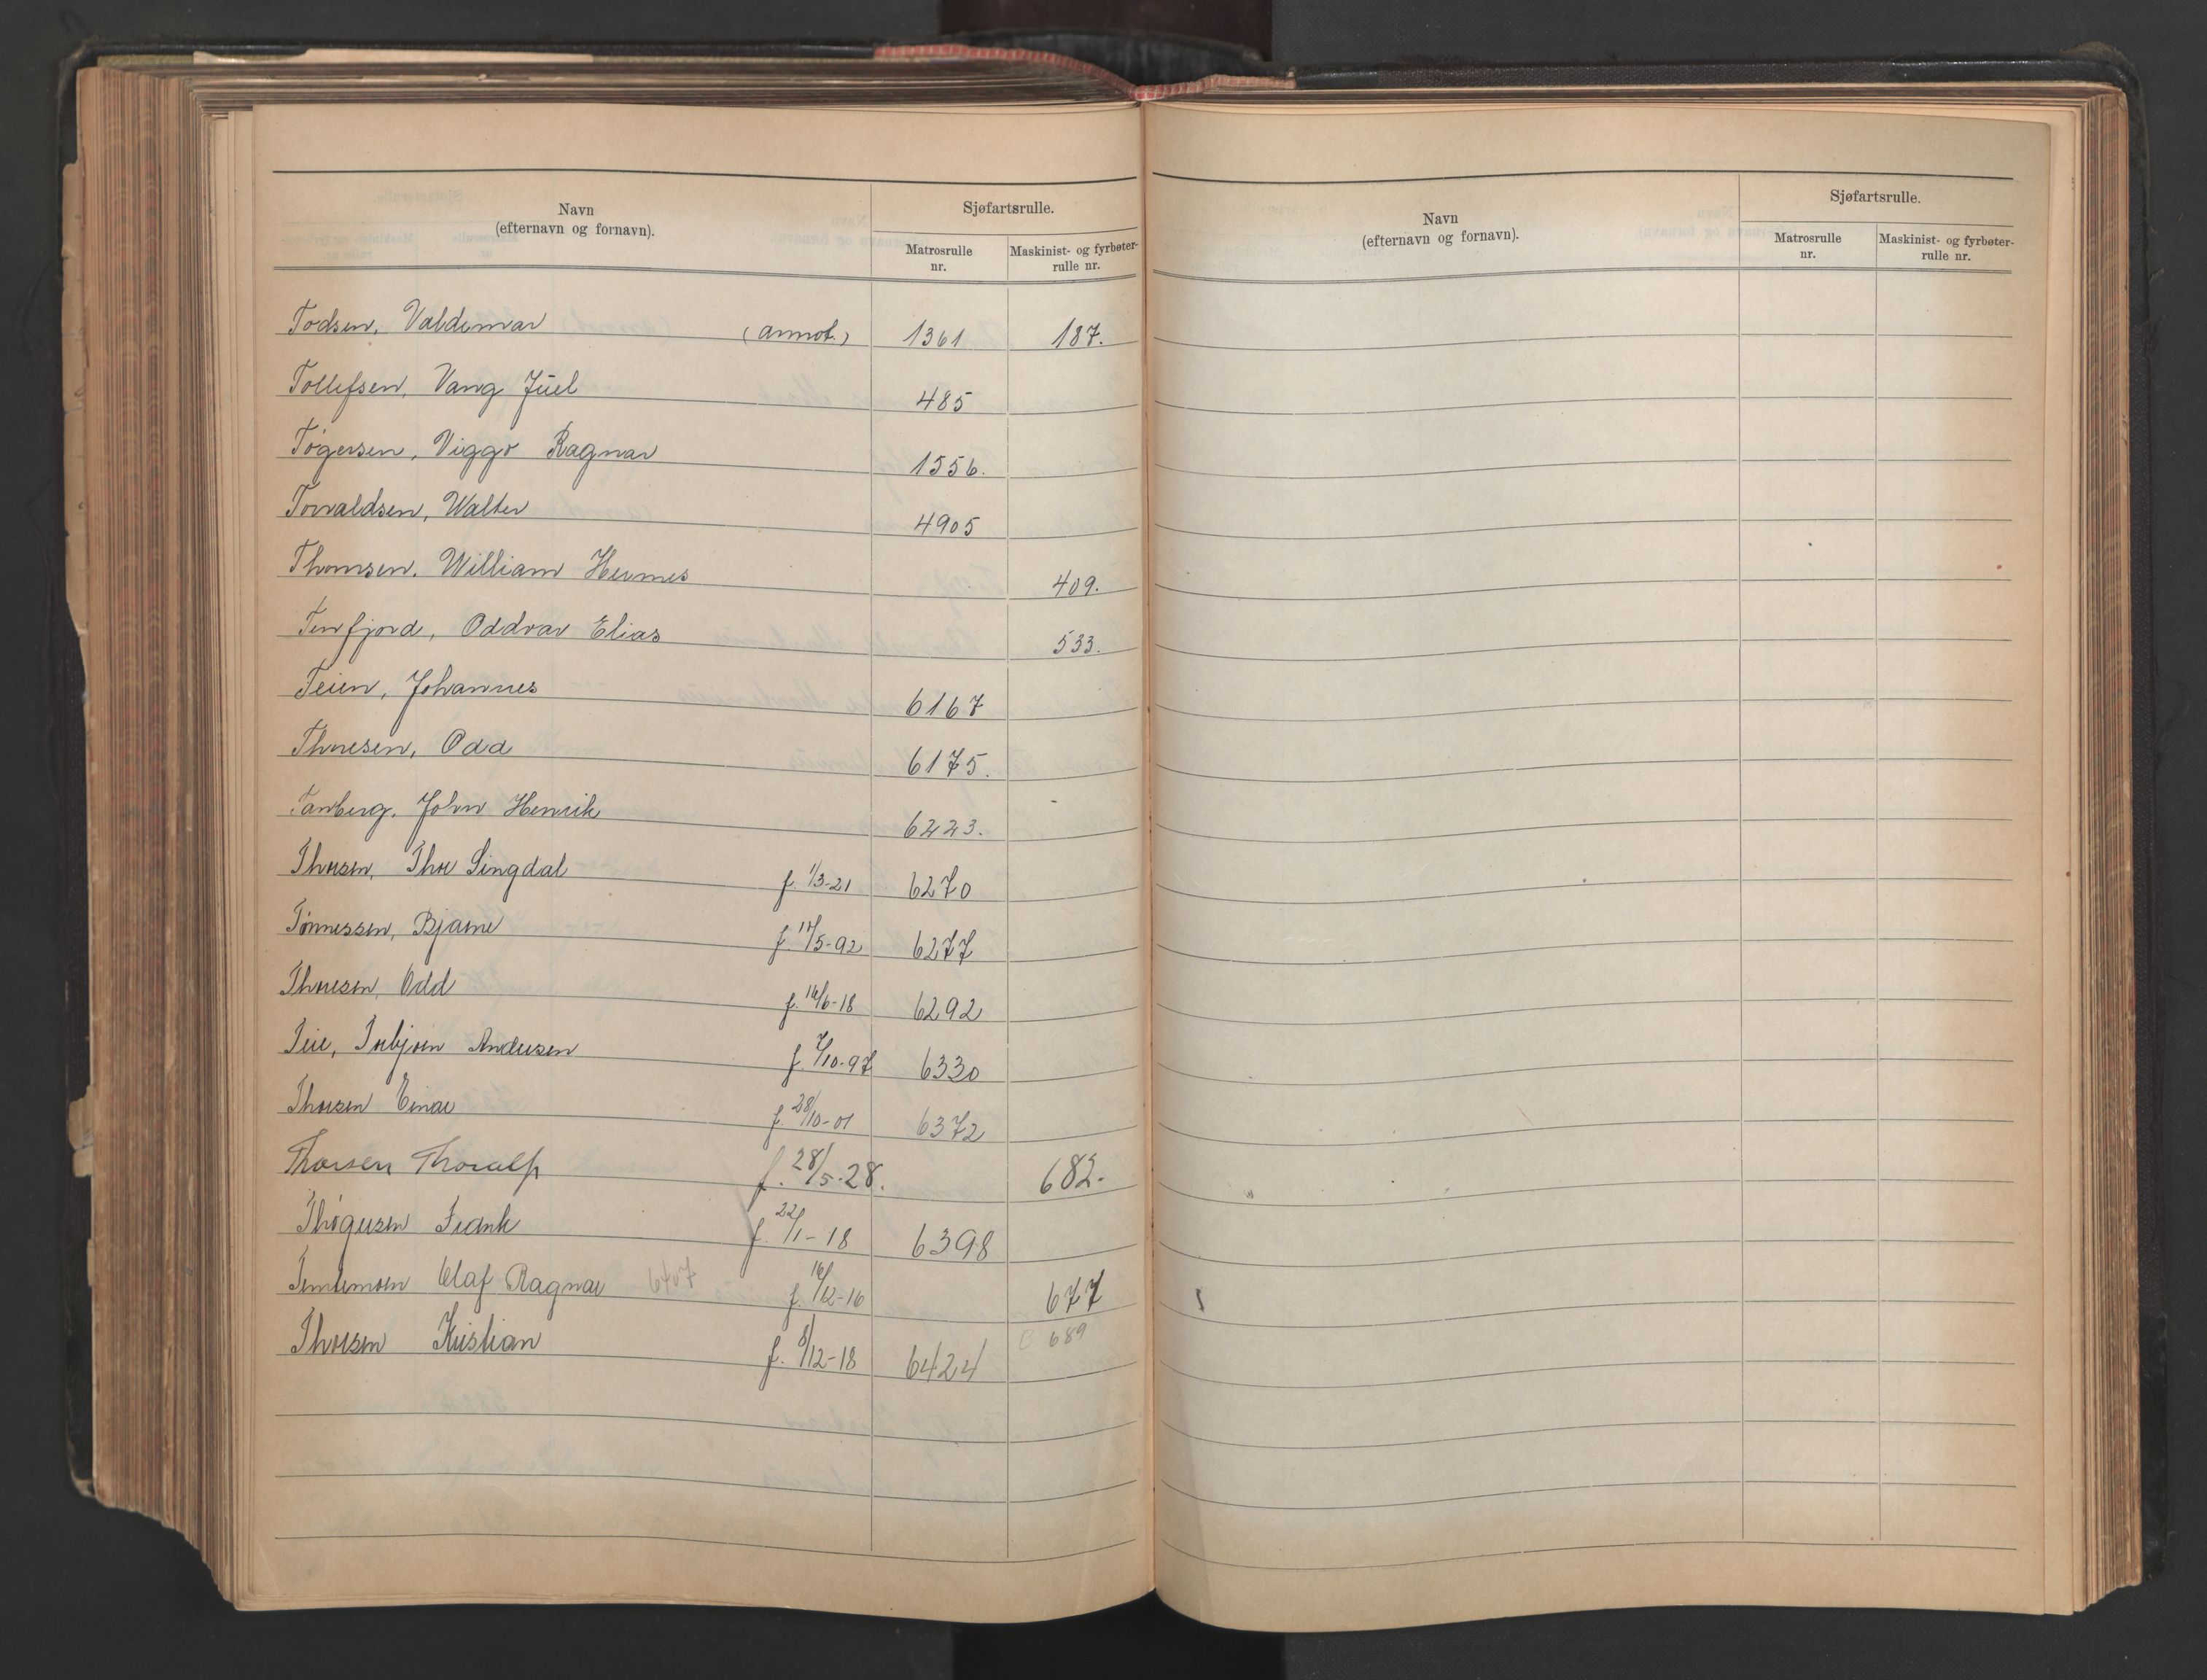 Navn
(efternavn og fornavn).
Sjøfartsrulle.
Matrosrulle
nr.
Maskinist- og fyrbøter-
rulle nr.
Todsen, Valdemar (annot.) 1361 187.
Tollefsen, Vang Juel 485
Tøgersen, Viggo Ragnar 1556.
Torvaldsen, Walter 4905
Thomsen, William Hermes 409.
Terfjord, Oddvar Elias 533.
Teien, Johannes 6167
Thoresen, Odd 6175.
Tanberg, John Henrik 6223.
Thorsen, Thor Singdal f. 1/3-21 6270
Tønnessen, Bjarne f. 17/5-92 6277
Thoresen, Odd f. 16/6-18 6292
Teie, Torbjørn Andersen f. 7/10-97 6330
Thorsen Einar f. 28/10-01 6372
Thorsen Thoralf f. 28/5-28. 682.
Thøgersen Frank f. 22/1-18 6398
Olaf Ragnar 6407 f. 16/12-16 677
Thorsen Kristian f. 8/12-18 6424 689
Navn
(efternavn og fornavn).
Sjøfartsrulle.
Matrosrulle
nr.
Maskinist- og fyrbøter-
rulle nr.